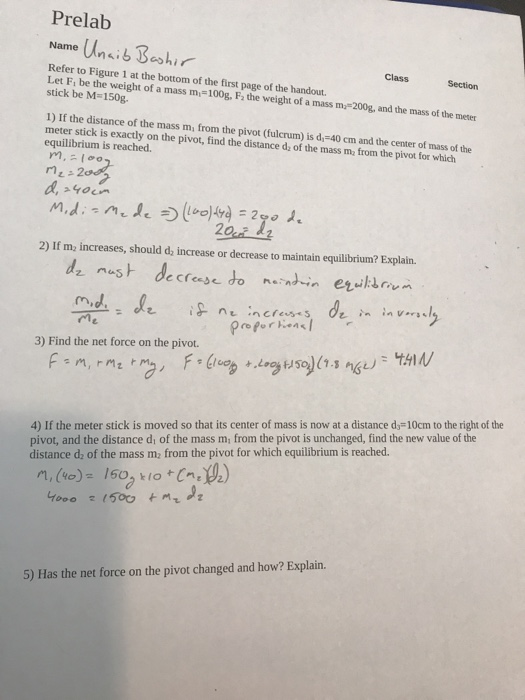 Prelab
Name Unaib Bashir
Class
Section
Refer to Figure 1 at the bottom of the first page of the handout.
Let F₁ be the weight of a mass m₁=100g, F₂ the weight of a mass m₂=200g, and the mass of the meter
stick be M=150g.
1) If the distance of the mass m₁ from the pivot (fulcrum) is d₁=40 cm and the center of mass of the
meter stick is exactly on the pivot, find the distance d₂ of the mass m₂ from the pivot for which
equilibrium is reached.
m₁ = 100g
m₂ = 200g
d₁ = 40cm
M₁d₁ = m₂ d₂ => (100)(40) = 200 d₂
20cm = d₂
2) If m₂ increases, should d₂ increase or decrease to maintain equilibrium? Explain.
d₂ must decrease to maintain equilibrium
m₁d₁/m₂ = d₂ if m₂ increases d₂ is inversely
proportional
3) Find the net force on the pivot.
F = m₁ + m₂ + mg, F = (100g + 200g + 150g)(9.8 m/s²) = 4.41 N
4) If the meter stick is moved so that its center of mass is now at a distance d₃=10cm to the right of the
pivot, and the distance d₁ of the mass m₁ from the pivot is unchanged, find the new value of the
distance d₂ of the mass m₂ from the pivot for which equilibrium is reached.
m₁(40) = 150g x10 + (m₂)(d₂)
4000 = 1500 + m₂ d₂
5) Has the net force on the pivot changed and how? Explain.